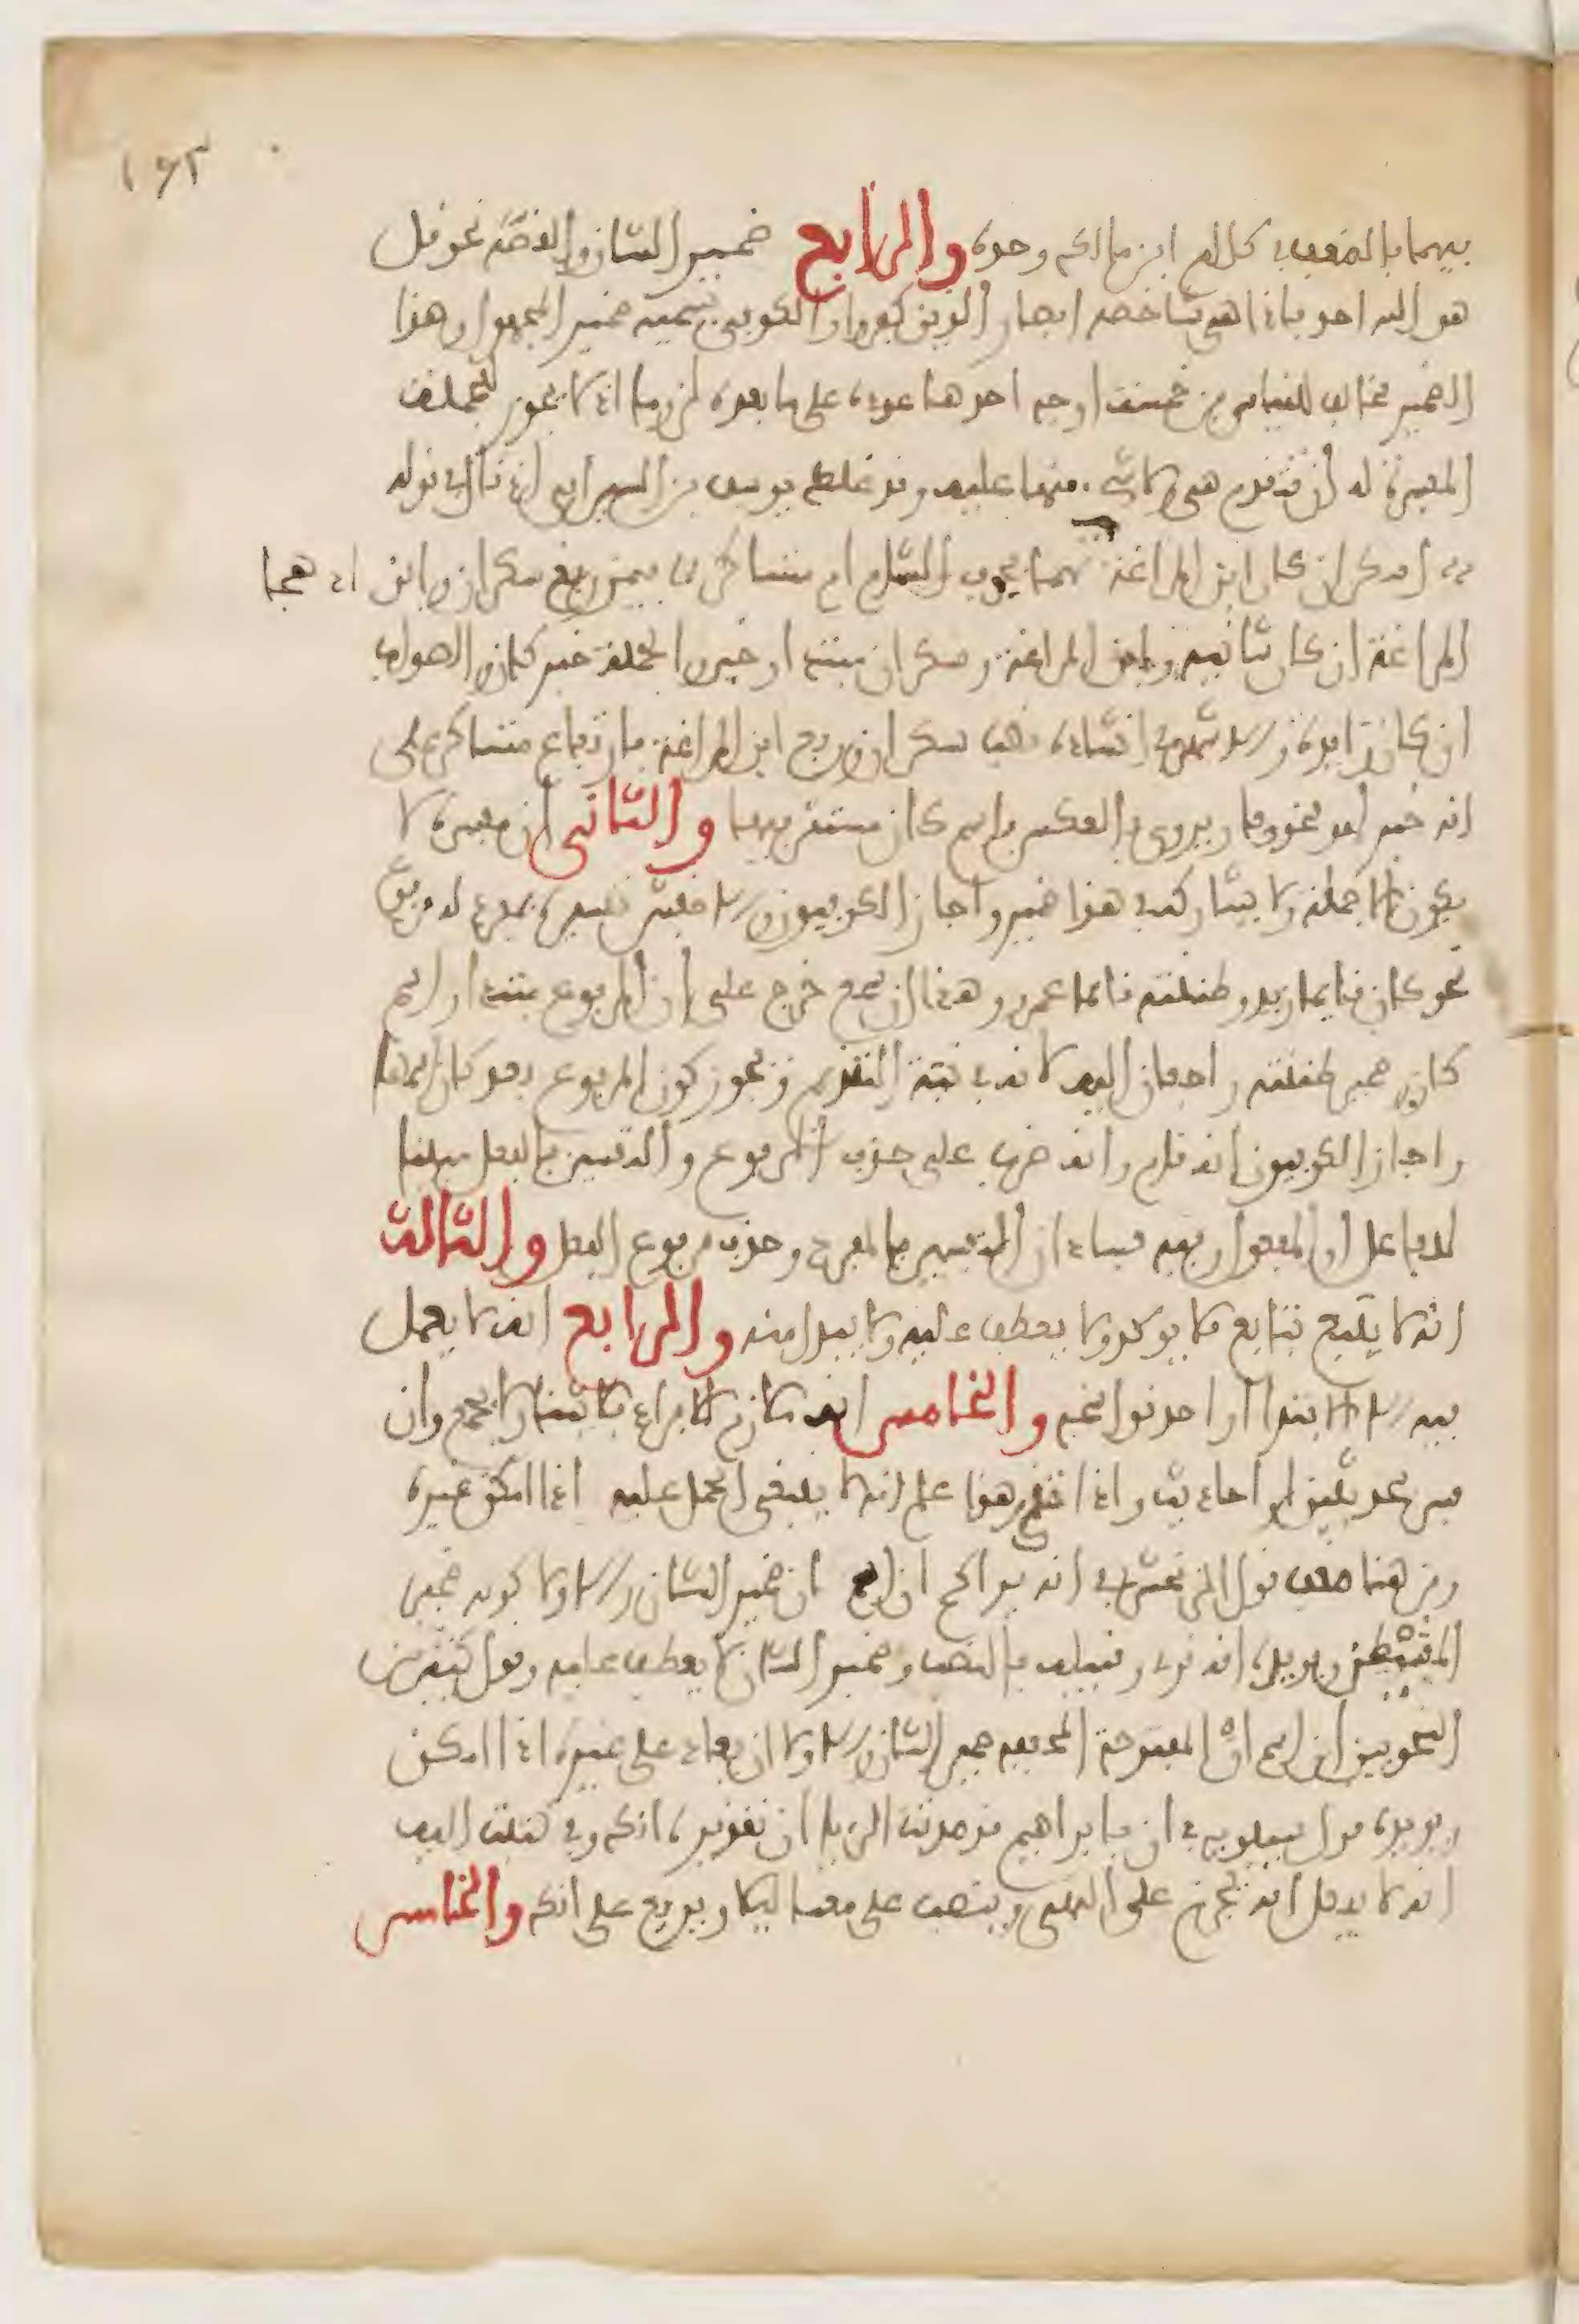 ١٦٢
بيهما بالضعف في كلام ابن مالك وحده والرابع ضمير الشان والقصة نحو قل
هو الله احد فاذا هي شاخصة ابصار الذين كفروا والكوفي يسميه ضمير المجهول وهذا
الضمير مخالف للقياس من خمسة اوجه احدها عوده على ما بعده لزوما اذ لا يجوز للجملة
المفسرة له ان تتقدم هي ولا شيء منها عليه وقد غلط يوسف بن السيرافي اذ قال في قوله
اسكران كان ابن المراغة اذ هجا تميما بجوف الشام ام متساكر فيمن رفع سكران وابن
المراغة ان كان شانية وابن المراغة وسكران مبتدا وخبر والجملة خبر كان والصواب
ان كان زائدة والاشهر في انشاده نصب سكران ورفع ابن المراغة فارتفاع متساكر على
انه خبر لهو محذوفا ويروى بالعكس فاسم كان مستتر فيها والثاني ان مفسره لا
يكون الا جملة ولا يشاركه في هذا ضمير واجاز الكوفيون والاخفش تفسيره بمفرد له مرفوع
نحو كان قائما زيد وظننته قائما عمرو وهذا ان سمع خرج على ان المرفوع مبتدا واسم
كان وضمير ظننته راجعان اليه لانه في نية التقديم ويجوز كون المرفوع بعد كان اسمها
واجاز الكوفيون انه قام وانه ضرب على حذف المرفوع والتفسير بالفعل مبنيا
للفاعل او للمفعول وفيه فسادان التفسير بالمفرد وحذف مرفوع الفعل والثالث
انه لا يتبع بتابع فلا يوكد ولا يعطف عليه ولا يبدل منه والرابع انه لا يعمل
فيه الا الابتدا او احد نواسخه والخامس انه ملازم للافراد فلا يثنا ولا يجمع وان
فسر بحديثين او احاديث واذا تقرر هذا علم انه لا ينبغي الحمل عليه اذا امكن غيره
ومن هنا ضعف قول الزمخشري في انه يراكم ان اسم ان ضمير الشان والاولى كونه ضمير
الشيطان ويويده انه قرئ وقبيله بالنصب وضمير الشان لا يعطف عليه وقول كثير من
النحويين ان اسم ان المفتوحة المخففة ضمير الشان والاولى ان يعاد على غيره اذا امكن
ويويده قول سيبويه في ان يا ابراهيم قد صدقت الرءيا ان تقديره انك وفي كتبت اليه
ان لا يفعل انه يجزم على النهي وينصب على معنى لئلا ويرفع على انك والخامس